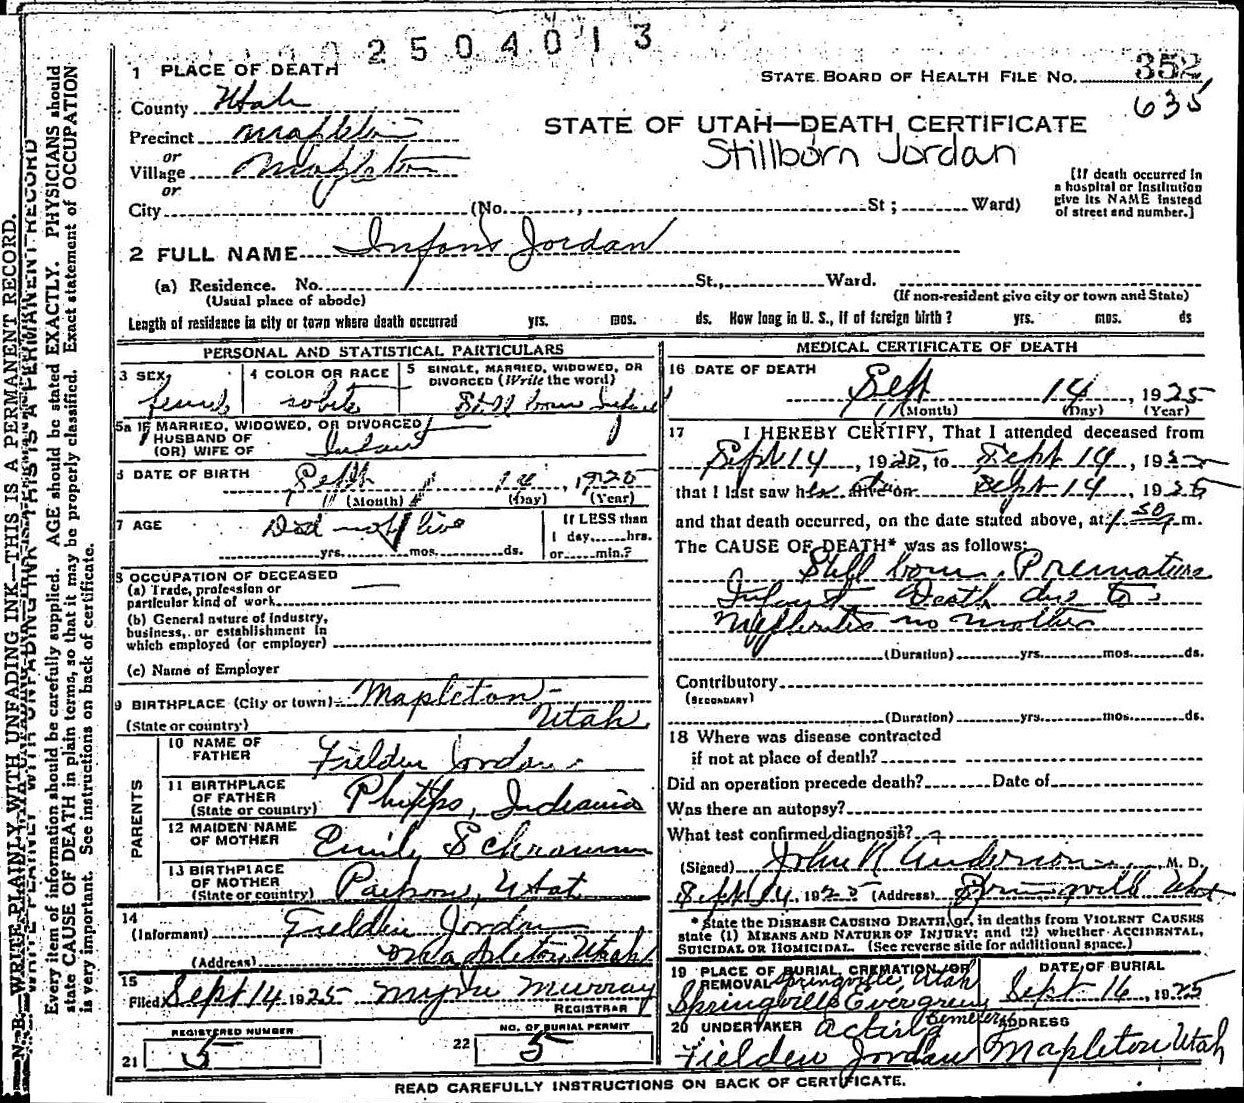 2 5 0 4 0 1 3
1 PLACE OF DEATH
STATE BOARD OF HEALTH FILE No. 352
635
County Utah
STATE OF UTAH—DEATH CERTIFICATE
Precinct Mapleton
Stillborn Jordan
or
Village Mapleton
or
[If death occurred in
a hospital or Institution
give its NAME instead
of street and number.]
City (No. , St ; Ward)
2 FULL NAME Infant Jordan
(a) Residence. No. St., Ward.
(Usual place of abode)
(If non-resident give city or town and State)
Length of residence in city or town where death occurred yrs. mos. ds. How long in U. S., if of foreign birth? yrs. mos. ds
N. B. WRITE PLAINLY WITH UNFADING INK—THIS IS A PERMANENT RECORD.
Every item of information should be carefully supplied. AGE should be stated EXACTLY. PHYSICIANS should
state CAUSE OF DEATH in plain terms, so that it may be properly classified. Exact statement of OCCUPATION
is very important. See instructions on back of certificate.
PERSONAL AND STATISTICAL PARTICULARS
3 SEX female
4 COLOR OR RACE white
5 SINGLE, MARRIED, WIDOWED, OR
DIVORCED (Write the word)
Still born Infant
5a If MARRIED, WIDOWED, OR DIVORCED
HUSBAND OF
(OR) WIFE OF Infant
6 DATE OF BIRTH Sept 14, 1925
(Month) (Day) (Year)
7 AGE Did not live
yrs. mos. ds.
If LESS than
1 day, hrs.
or min.?
8 OCCUPATION OF DECEASED
(a) Trade, profession or
particular kind of work
(b) General nature of industry,
business, or establishment in
which employed (or employer)
(c) Name of Employer
9 BIRTHPLACE (City or town) Mapleton
(State or country) Utah
PARENTS
10 NAME OF
FATHER Fielden Jordan
11 BIRTHPLACE
OF FATHER
(State or country) Phipps, Indiania
12 MAIDEN NAME
OF MOTHER Emily Schramm
13 BIRTHPLACE
OF MOTHER
(State or country) Payson, Utah
14
(Informant) Fielden Jordan
(Address) Mapleton, Utah
15
Filed Sept 14 1925 Murray
REGISTRAR
REGISTERED NUMBER
21 5
NO. OF BURIAL PERMIT
22 5
MEDICAL CERTIFICATE OF DEATH
16 DATE OF DEATH
Sept 14, 1925
(Month) (Day) (Year)
17 I HEREBY CERTIFY, That I attended deceased from
Sept 14, 1925, to Sept 14, 1925
that I last saw her alive on Sept 14, 1925
and that death occurred, on the date stated above, at 1 50 m.
The CAUSE OF DEATH* was as follows:
Still born. Premature
Infant Death due to
Nephritis in mother
(Duration) yrs. mos. ds.
Contributory
(SECONDARY)
(Duration) yrs. mos. ds.
18 Where was disease contracted
if not at place of death?
Did an operation precede death? Date of
Was there an autopsy?
What test confirmed diagnosis?
(Signed) John R Anderson, M. D.
Sept 14, 1925 (Address) Springville Utah
* State the DISEASE CAUSING DEATH, or, in deaths from VIOLENT CAUSES
state (1) MEANS AND NATURE OF INJURY; and (2) whether ACCIDENTAL,
SUICIDAL OR HOMICIDAL. (See reverse side for additional space.)
19 PLACE OF BURIAL, CREMATION, OR
REMOVAL Springville, Utah
Springville Evergreen
Cemetery
DATE OF BURIAL
Sept 16, 1925
20 UNDERTAKER Acting
Fielden Jordan
ADDRESS
Mapleton, Utah
READ CAREFULLY INSTRUCTIONS ON BACK OF CERTIFICATE.